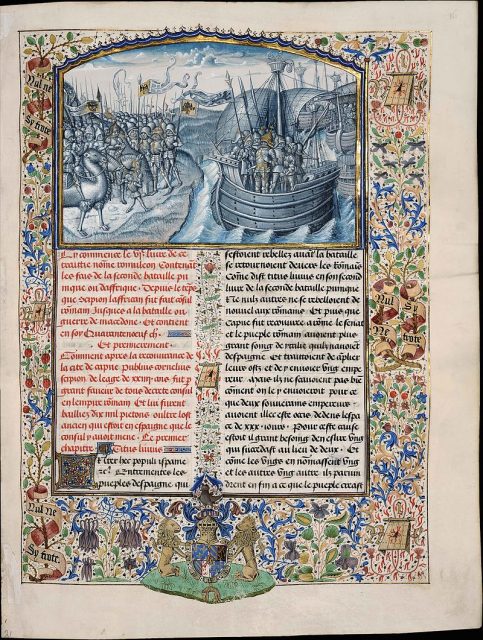 Nul ne
Sy frote
Cy commence le vje liure de ce
traittie nome romuleon Contenat
les fais de la seconde bataille pu
nique ou daffrique . Depuis le teps
que Scipion laffrican fut fait cosul
romain Jusques a la bataille ou
guerre de macedone . et contient
en soy Quarantenoeuf
Et premierement
Comment apres la recouurance de
la cite de capue Publius cornelius
scipion de leage de xxiiij. ans fut p
grant faueur de tous decrete consul
en lempire romain. Et lui furent
bailliez dix mil pietons oultre lost
ancien qui estoit en espaigne que le
consul y auoit mene . Le premier
chapitre . Titus liuius
hec populi
Entrementes les
pueples despaigne qui
sestoient rebellez auat la bataille
se retournoient deuers les romais
Come dist titus liuius en son second
liure de la seconde bataille punique
Ne nuls autres ne se rebelloient de
nouuel aux romains. Et puis que
capue fut recouuree a rome le senat
et le pueple romain auoient plus
grant soing de ytalie quilz nauoient
despaigne. Et traittoient de
leurs ostz et de y enuoier vng empe
reur . Mais ilz ne scauoient pas bie
coment on le y enuoieroit pour ce
que deux souuerains empereurs
auoient illec este occis dedens lespa
ce de xxx iours . Pour ceste cause
estoit il grant besoing den eslire vng
qui succedast au lieu de deux . Et
come les vngz en nomassent vng
et les autres vng autre ilz paruin
drent en fin a ce que le pueple creast
Nul Sy
ne frote
Nul ne
Sy frote
Nul ne
Sy frote